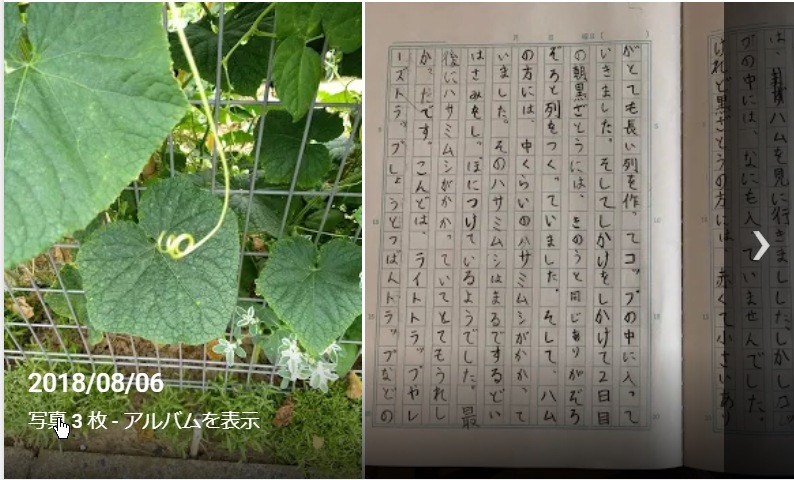 2018/08/06
写真 3 枚 - アルバムを表示
月 日 曜日[ ]
は、ハムを見に行きました。しかしコ
プの中には、なにも入っていませんでした。
けれど黒ざとうの方には 赤くて小さいあり
がとても長い列を作ってコップの中に入って
いきました。そしてしかけをしかけて2日目
の朝黒ざとうには、きのうと同じありがぞろ
ぞろと列をつくっていました。そして、ハム
の方には、中くらいのハサミムシがかかって
いました。そのハサミムシはまるでするどい
はさみをしっぽにつけているようでした。最
後にハサミムシがかかっていてとてもうれし
かったです。こんどは、ライトトラップやレ
ーズトラップしょうとつばんトラップなどの